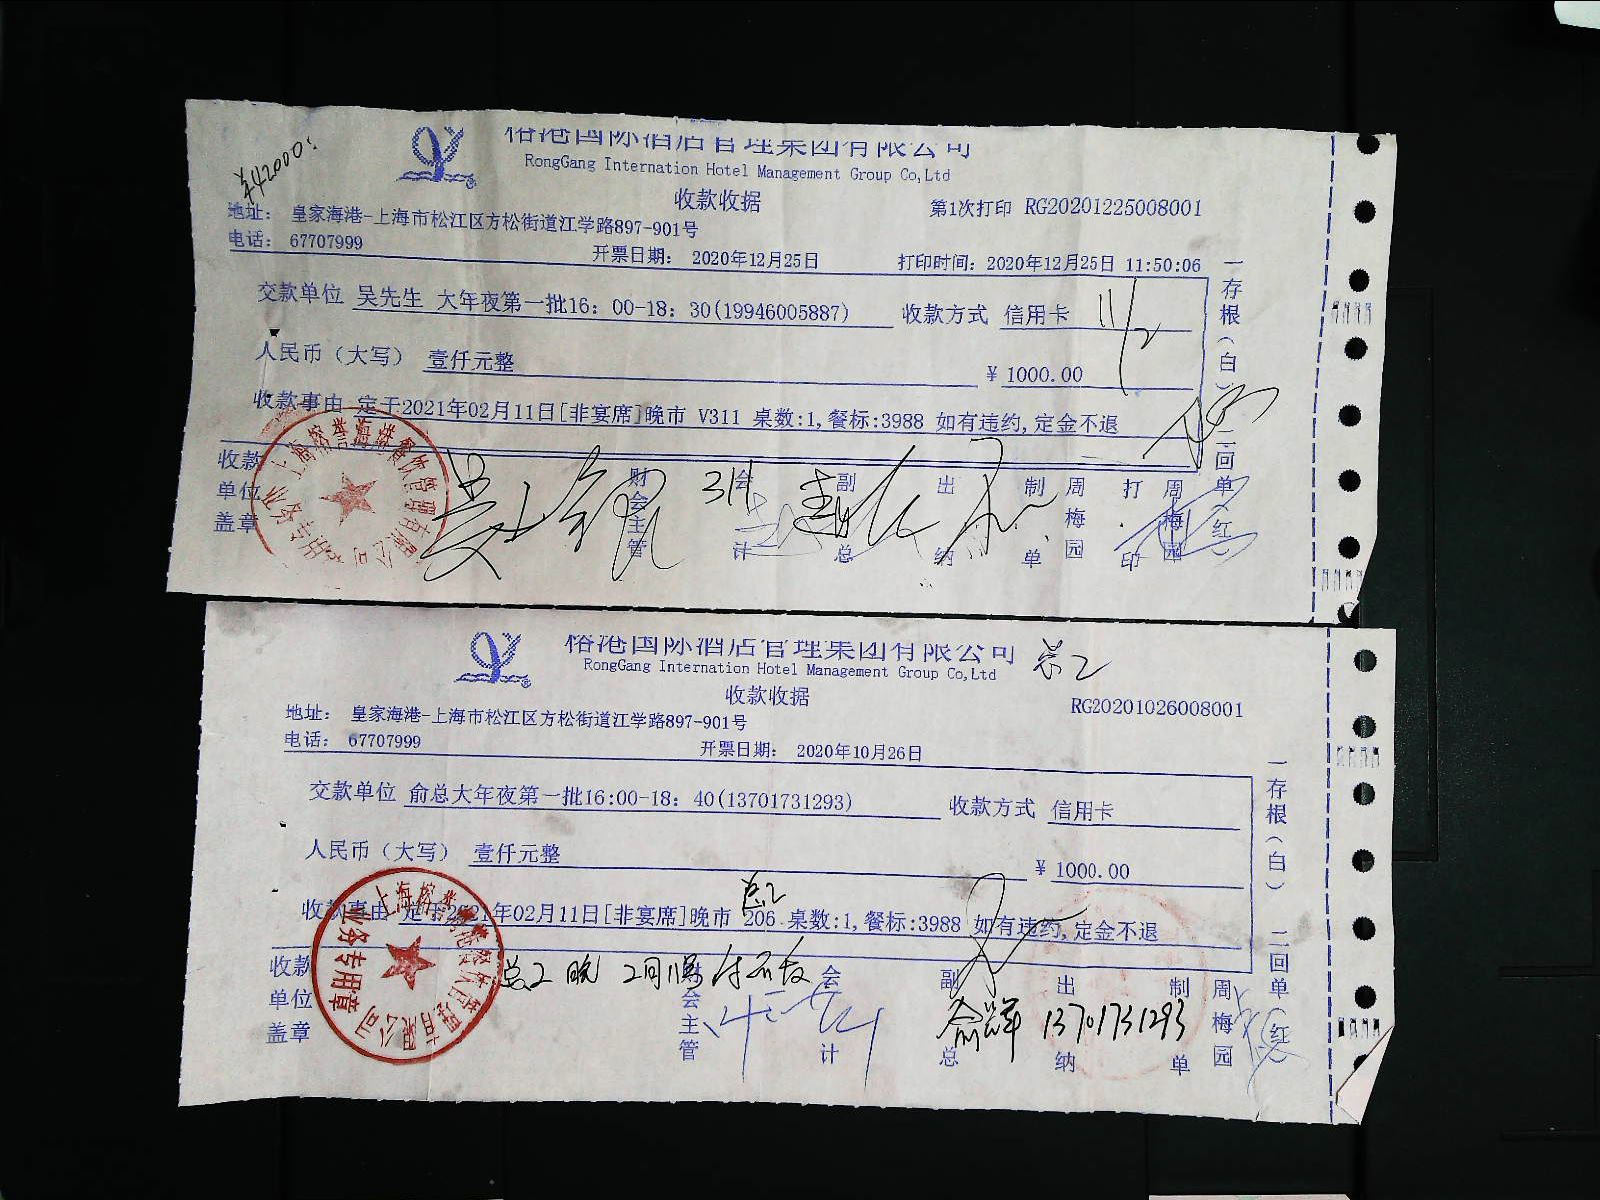 榕港国际酒店管理集团有限公司
RongGang Internation Hotel Management Group Co,Ltd
¥42000
收款收据
第1次打印 RG20201225008001
地址： 皇家海港-上海市松江区方松街道江学路897-901号
电话： 67707999
开票日期： 2020年12月25日
打印时间：2020年12月25日 11:50:06
交款单位 吴先生 大年夜第一批16：00-18：30(19946005887) 收款方式 信用卡
11/2
人民币（大写） 壹仟元整 ¥ 1000.00
收款事由 定于2021年02月11日[非宴席]晚市 V311 桌数:1,餐标:3988 如有违约,定金不退
收款单位盖章 财会主管 会计 副总 出纳 制单 周梅园 打印 周梅园
一存根（白） 二回单（红）
业务专用章
榕港国际酒店管理集团有限公司
总2
RongGang Internation Hotel Management Group Co,Ltd
收款收据
RG20201026008001
地址： 皇家海港-上海市松江区方松街道江学路897-901号
电话： 67707999
开票日期： 2020年10月26日
交款单位 俞总大年夜第一批16:00-18：40(13701731293) 收款方式 信用卡
人民币（大写） 壹仟元整 ¥ 1000.00
总2
收款事由 定于2021年02月11日[非宴席]晚市 206 桌数:1,餐标:3988 如有违约,定金不退
总2 晚 2月11号
收款单位盖章 财会主管 会计 副总 出纳 制单 周梅园
13701731293
一存根（白） 二回单（红）
业务专用章